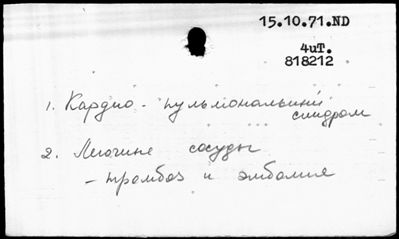 15.10.71.ND
4иТ.
818212
1. Кардио - пульмональный
синдром
2. Легочные сосуды
- тромбоз и эмболия